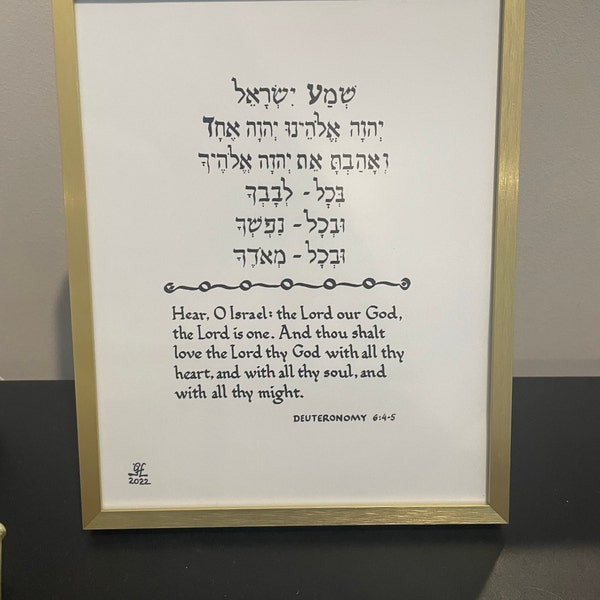 שְׁמַע יִשְׂרָאֵל
יְהוָה אֱלֹהֵינוּ יְהוָה אֶחָד
וְאָהַבְתָּ אֵת יְהוָה אֱלֹהֶיךָ
בְּכָל- לְבָבְךָ
וּבְכָל- נַפְשְׁךָ
וּבְכָל- מְאֹדֶךָ
Hear, O Israel: the Lord our God,
the Lord is one. And thou shalt
love the Lord thy God with all thy
heart, and with all thy soul, and
with all thy might.
DEUTERONOMY 6:4-5
2022